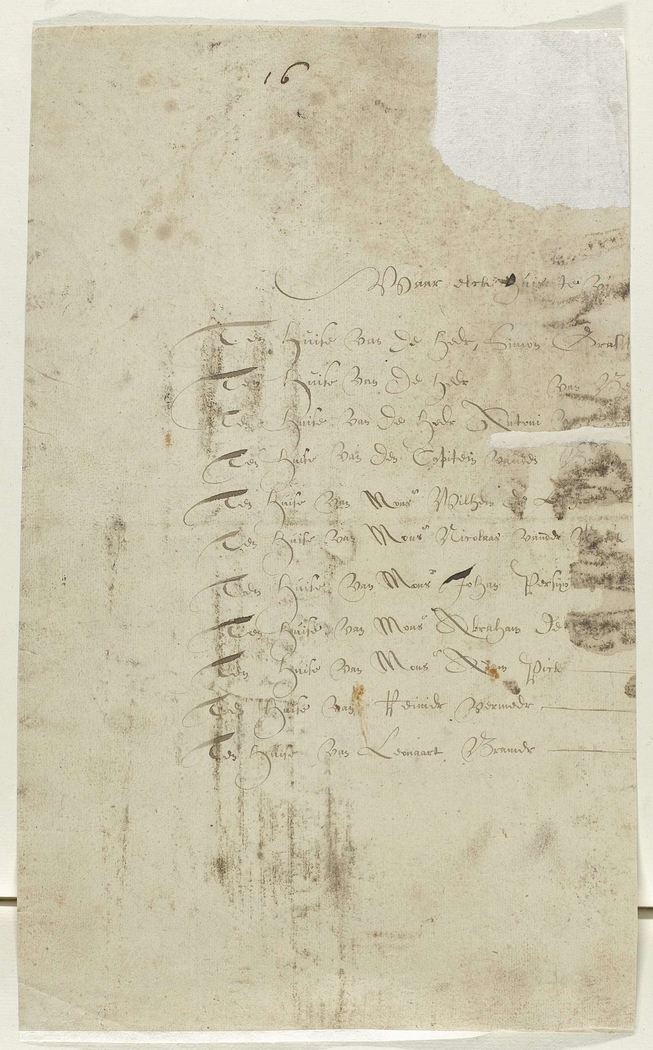 16
Waar elck huis te
Ten huise van de heer, Simon
Ten huise van de heer van
Ten huise van de heer Antoni
Ten huise van den Capitein vanden
Ten huise van Monsr Wilhem de
Ten huise van Monsr Nicolaas vander
Ten huise van Monsr Johan Persijn
Ten huise van Monsr Abraham de
Ten huise van Monsr Pick
Ten huise van Reinier Vermeer
Ten huise van Leonaart Bramer